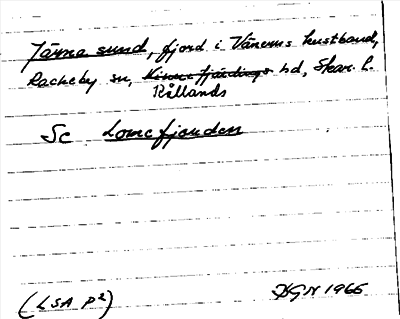 Järna sund, fjord i Vänerns kustband,
Rackeby sn, Kinnefjärdings hd, Skar. l.
Kållands
Se Lonefjorden
(LSA P²)
HGN 1966